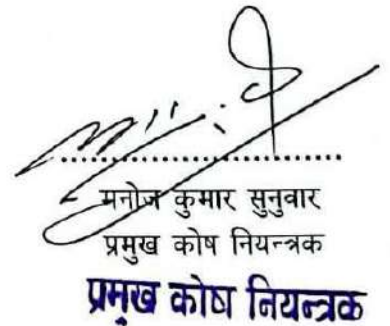 मनोज कुमार सुनुवार
प्रमुख कोष नियन्त्रक
प्रमुख कोष नियन्त्रक